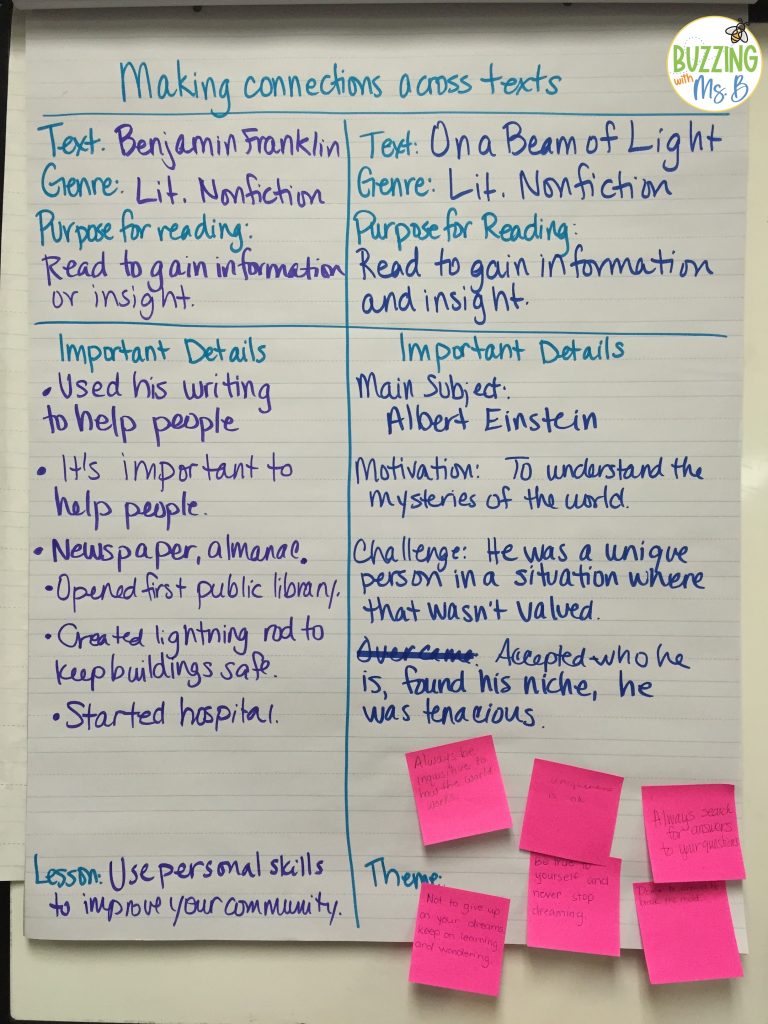 BUZZING
with
Ms. B
Making connections across texts
Text: Benjamin Franklin
Genre: Lit. Nonfiction
Purpose for reading:
Read to gain information
or insight.
Important Details
• Used his writing
to help people
• It's important to
help people.
• Newspaper, almanac.
• Opened first public library.
• Created lightning rod to
keep buildings safe.
• Started hospital.
Lesson: Use personal skills
to improve your community.
Text: On a Beam of Light
Genre: Lit. Nonfiction
Purpose for Reading:
Read to gain information
and insight.
Important Details
Main Subject:
Albert Einstein
Motivation: To understand the
mysteries of the world.
Challenge: He was a unique
person in a situation where
that wasn't valued.
Overcame. Accepted who he
is, found his niche, he
was tenacious.
Theme:
Always be
inquisitive to
how the world
works.
uniqueness
is ok
Always search
for answers
to your questions
Not to give up
on your dreams
keep on learning
and wondering.
be true to
yourself and
never stop
dreaming.